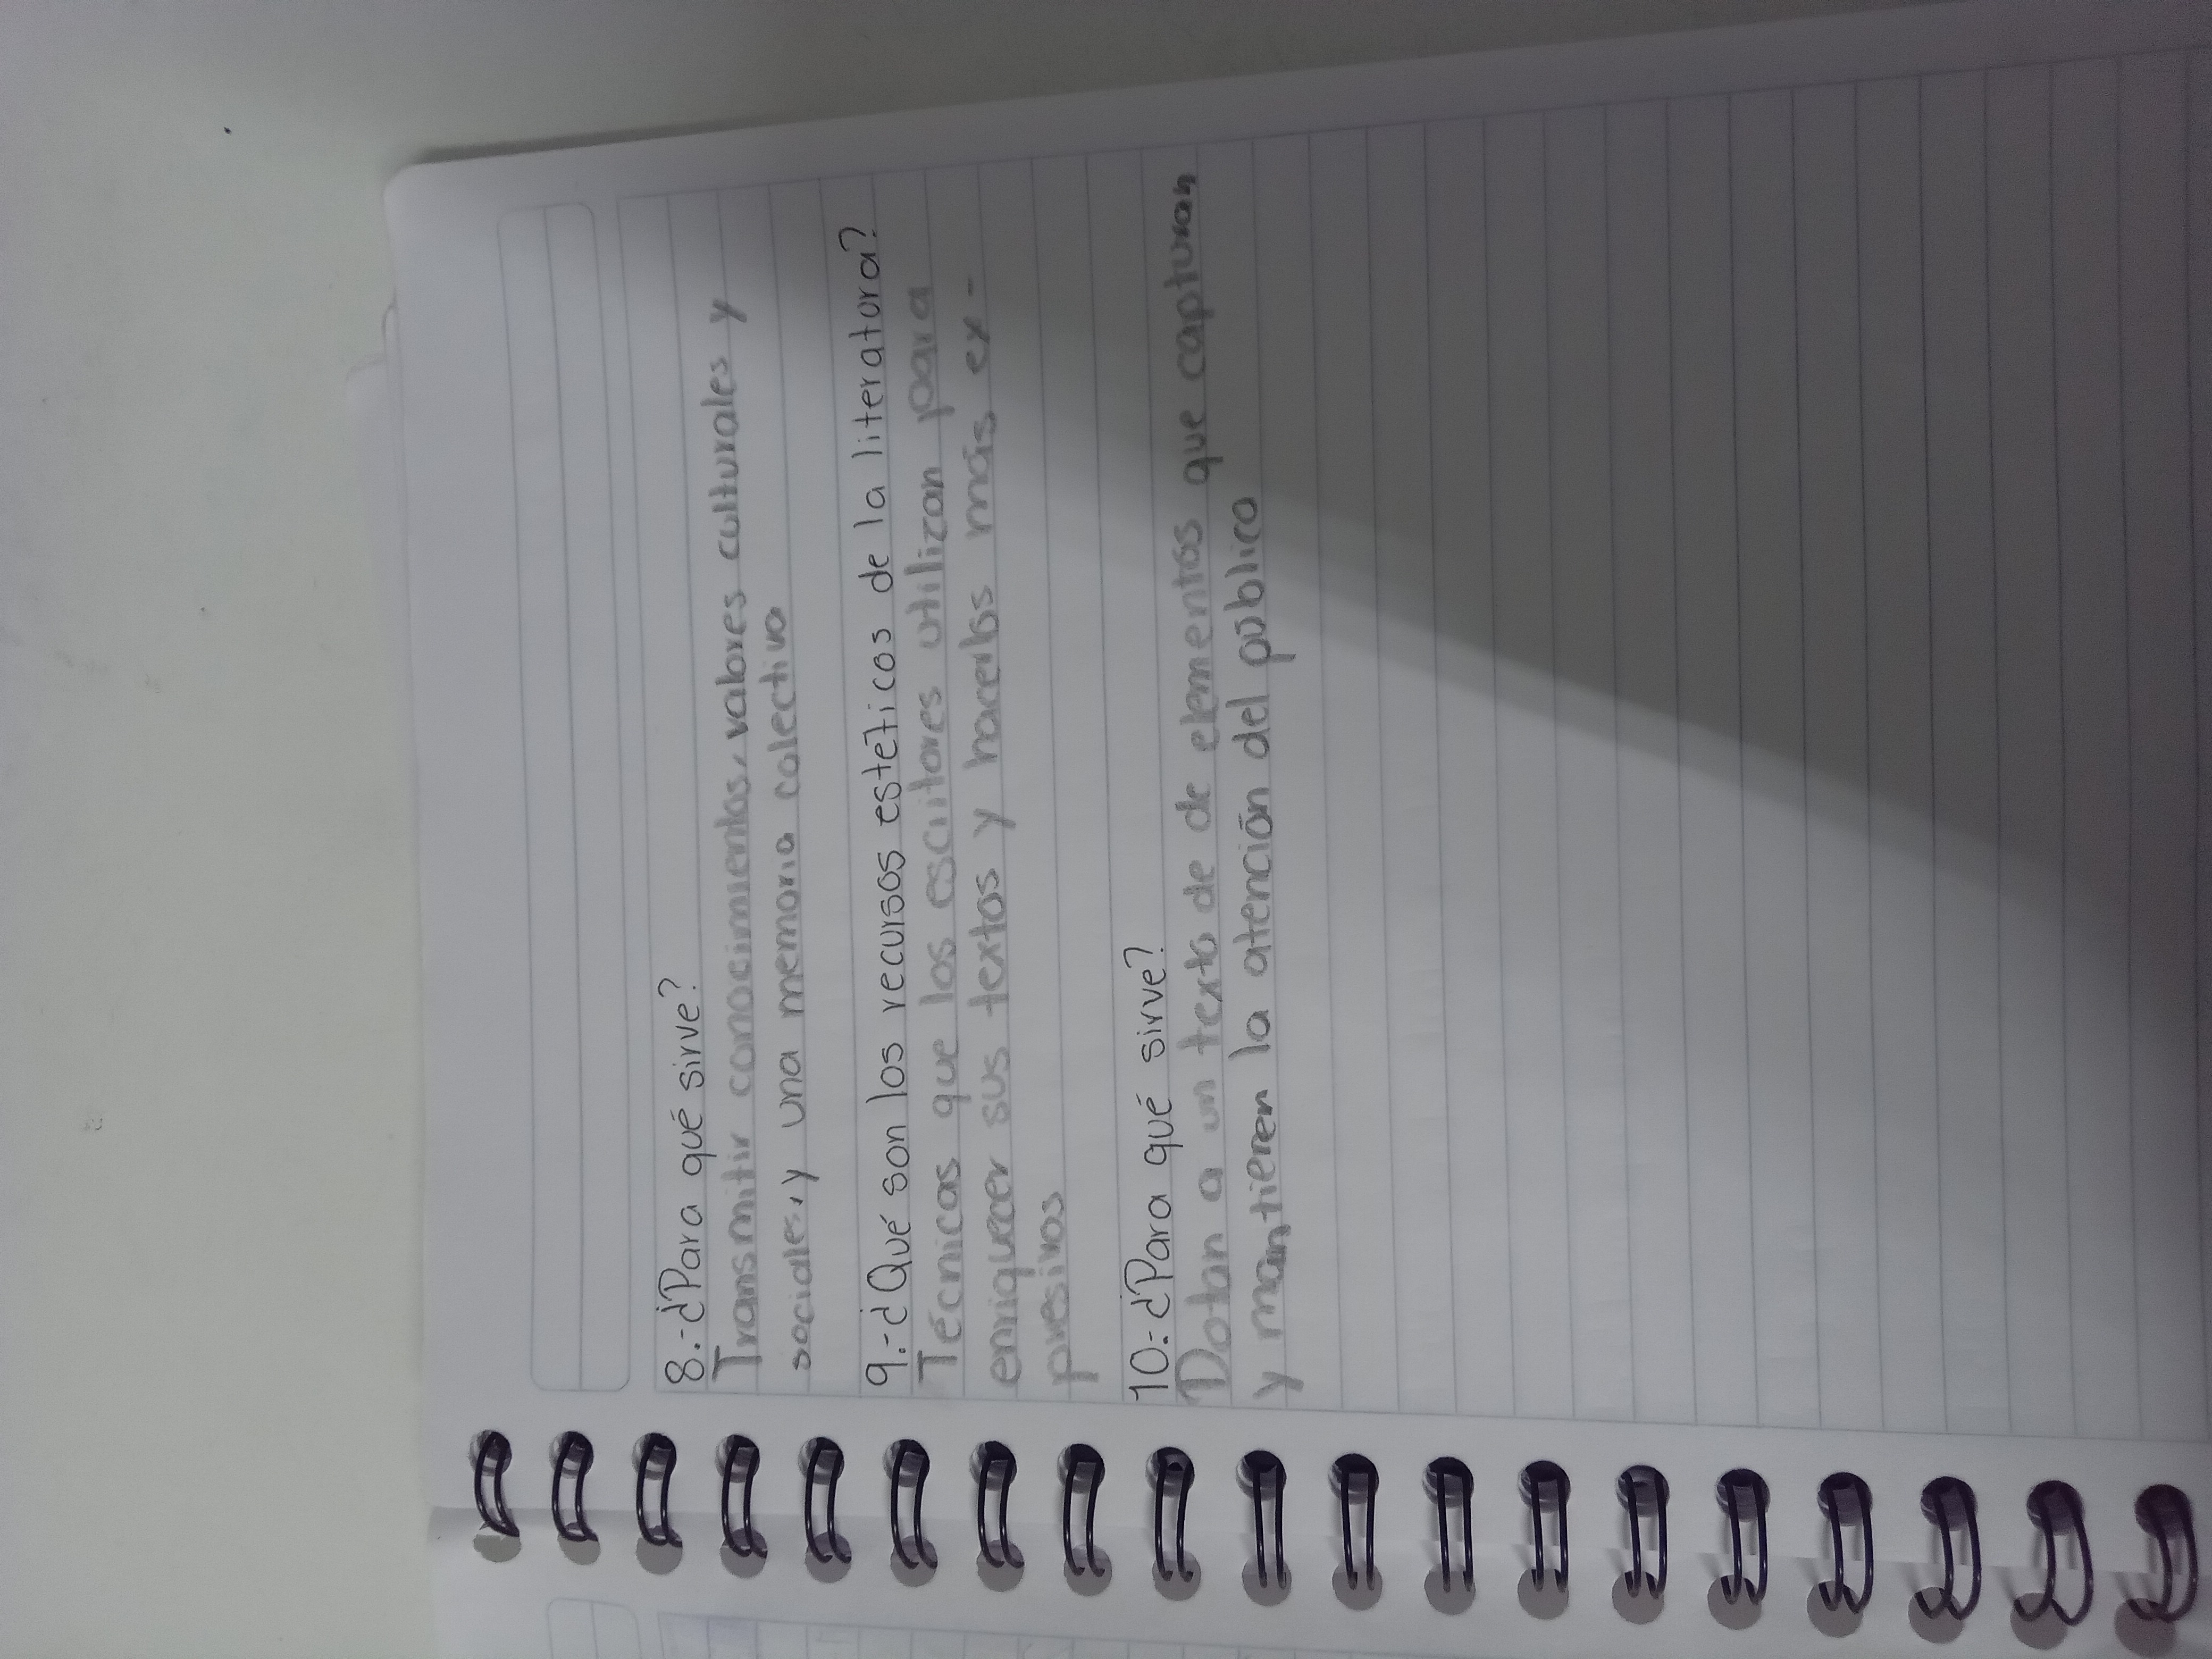 8.-¿Para qué sirve?
Transmitir conocimientos, valores culturales y
sociales, y una memoria colectiva
9.-¿Qué son los recursos estéticos de la literatura?
Técnicas que los escritores utilizan para
enriquecer sus textos y hacerlos más ex-
presivos
10.-¿Para qué sirve?
Dotan a un texto de elementos que capturan
y mantienen la atención del público